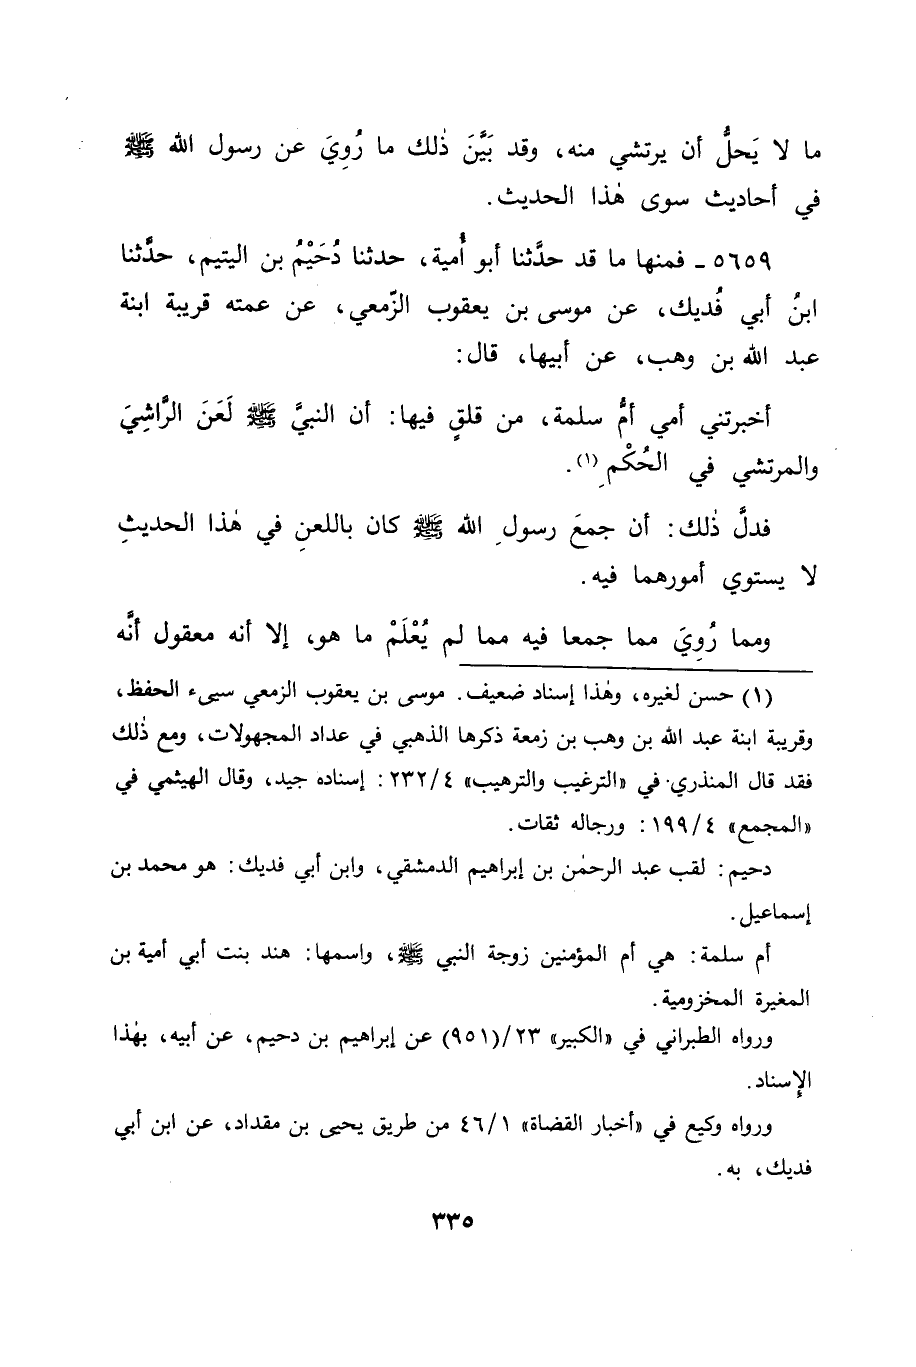 ما لا يَحلُّ أن يرتشي منه، وقد بَيَّنَ ذٰلك ما رُوِيَ عن رسول الله ﷺ
في أحاديث سوى هٰذا الحديث.
٥٦٥٩ ـ فمنها ما قد حدَّثنا أبو أُمية، حدثنا دُحَيْمُ بن اليتيم، حدَّثنا
ابنُ أبي فُديك، عن موسى بن يعقوب الزّمعي، عن عمته قريبة ابنة
عبد الله بن وهب، عن أبيها، قال:
أخبرتني أمي أمُّ سلمة، من قلقٍ فيها: أن النبيَّ ﷺ لَعَنَ الرَّاشِيَ
والمرتشي في الحُكْمِ (١).
فدلَّ ذٰلك: أن جمعَ رسولِ الله ﷺ كان باللعنِ في هٰذا الحديثِ
لا يستوي أمورهما فيه.
ومما رُوِيَ مما جمعا فيه مما لم يُعْلَمْ ما هو، إلا أنه معقول أنَّه
(١) حسن لغيره، وهٰذا إسناد ضعيف. موسى بن يعقوب الزمعي سيىء الحفظ،
وقريبة ابنة عبد الله بن وهب بن زمعة ذكرها الذهبي في عداد المجهولات، ومع ذٰلك
فقد قال المنذري في «الترغيب والترهيب» ٢٣٢/٤: إسناده جيد، وقال الهيثمي في
«المجمع» ١٩٩/٤: ورجاله ثقات.
دحيم: لقب عبد الرحمٰن بن إبراهيم الدمشقي، وابن أبي فديك: هو محمد بن
إسماعيل.
أم سلمة: هي أم المؤمنين زوجة النبي ﷺ، واسمها: هند بنت أبي أمية بن
المغيرة المخزومية.
ورواه الطبراني في «الكبير» ٢٣/(٩٥١) عن إبراهيم بن دحيم، عن أبيه، بهٰذا
الإسناد.
ورواه وكيع في «أخبار القضاة» ٤٦/١ من طريق يحيى بن مقداد، عن ابن أبي
فديك، به.
٣٣٥